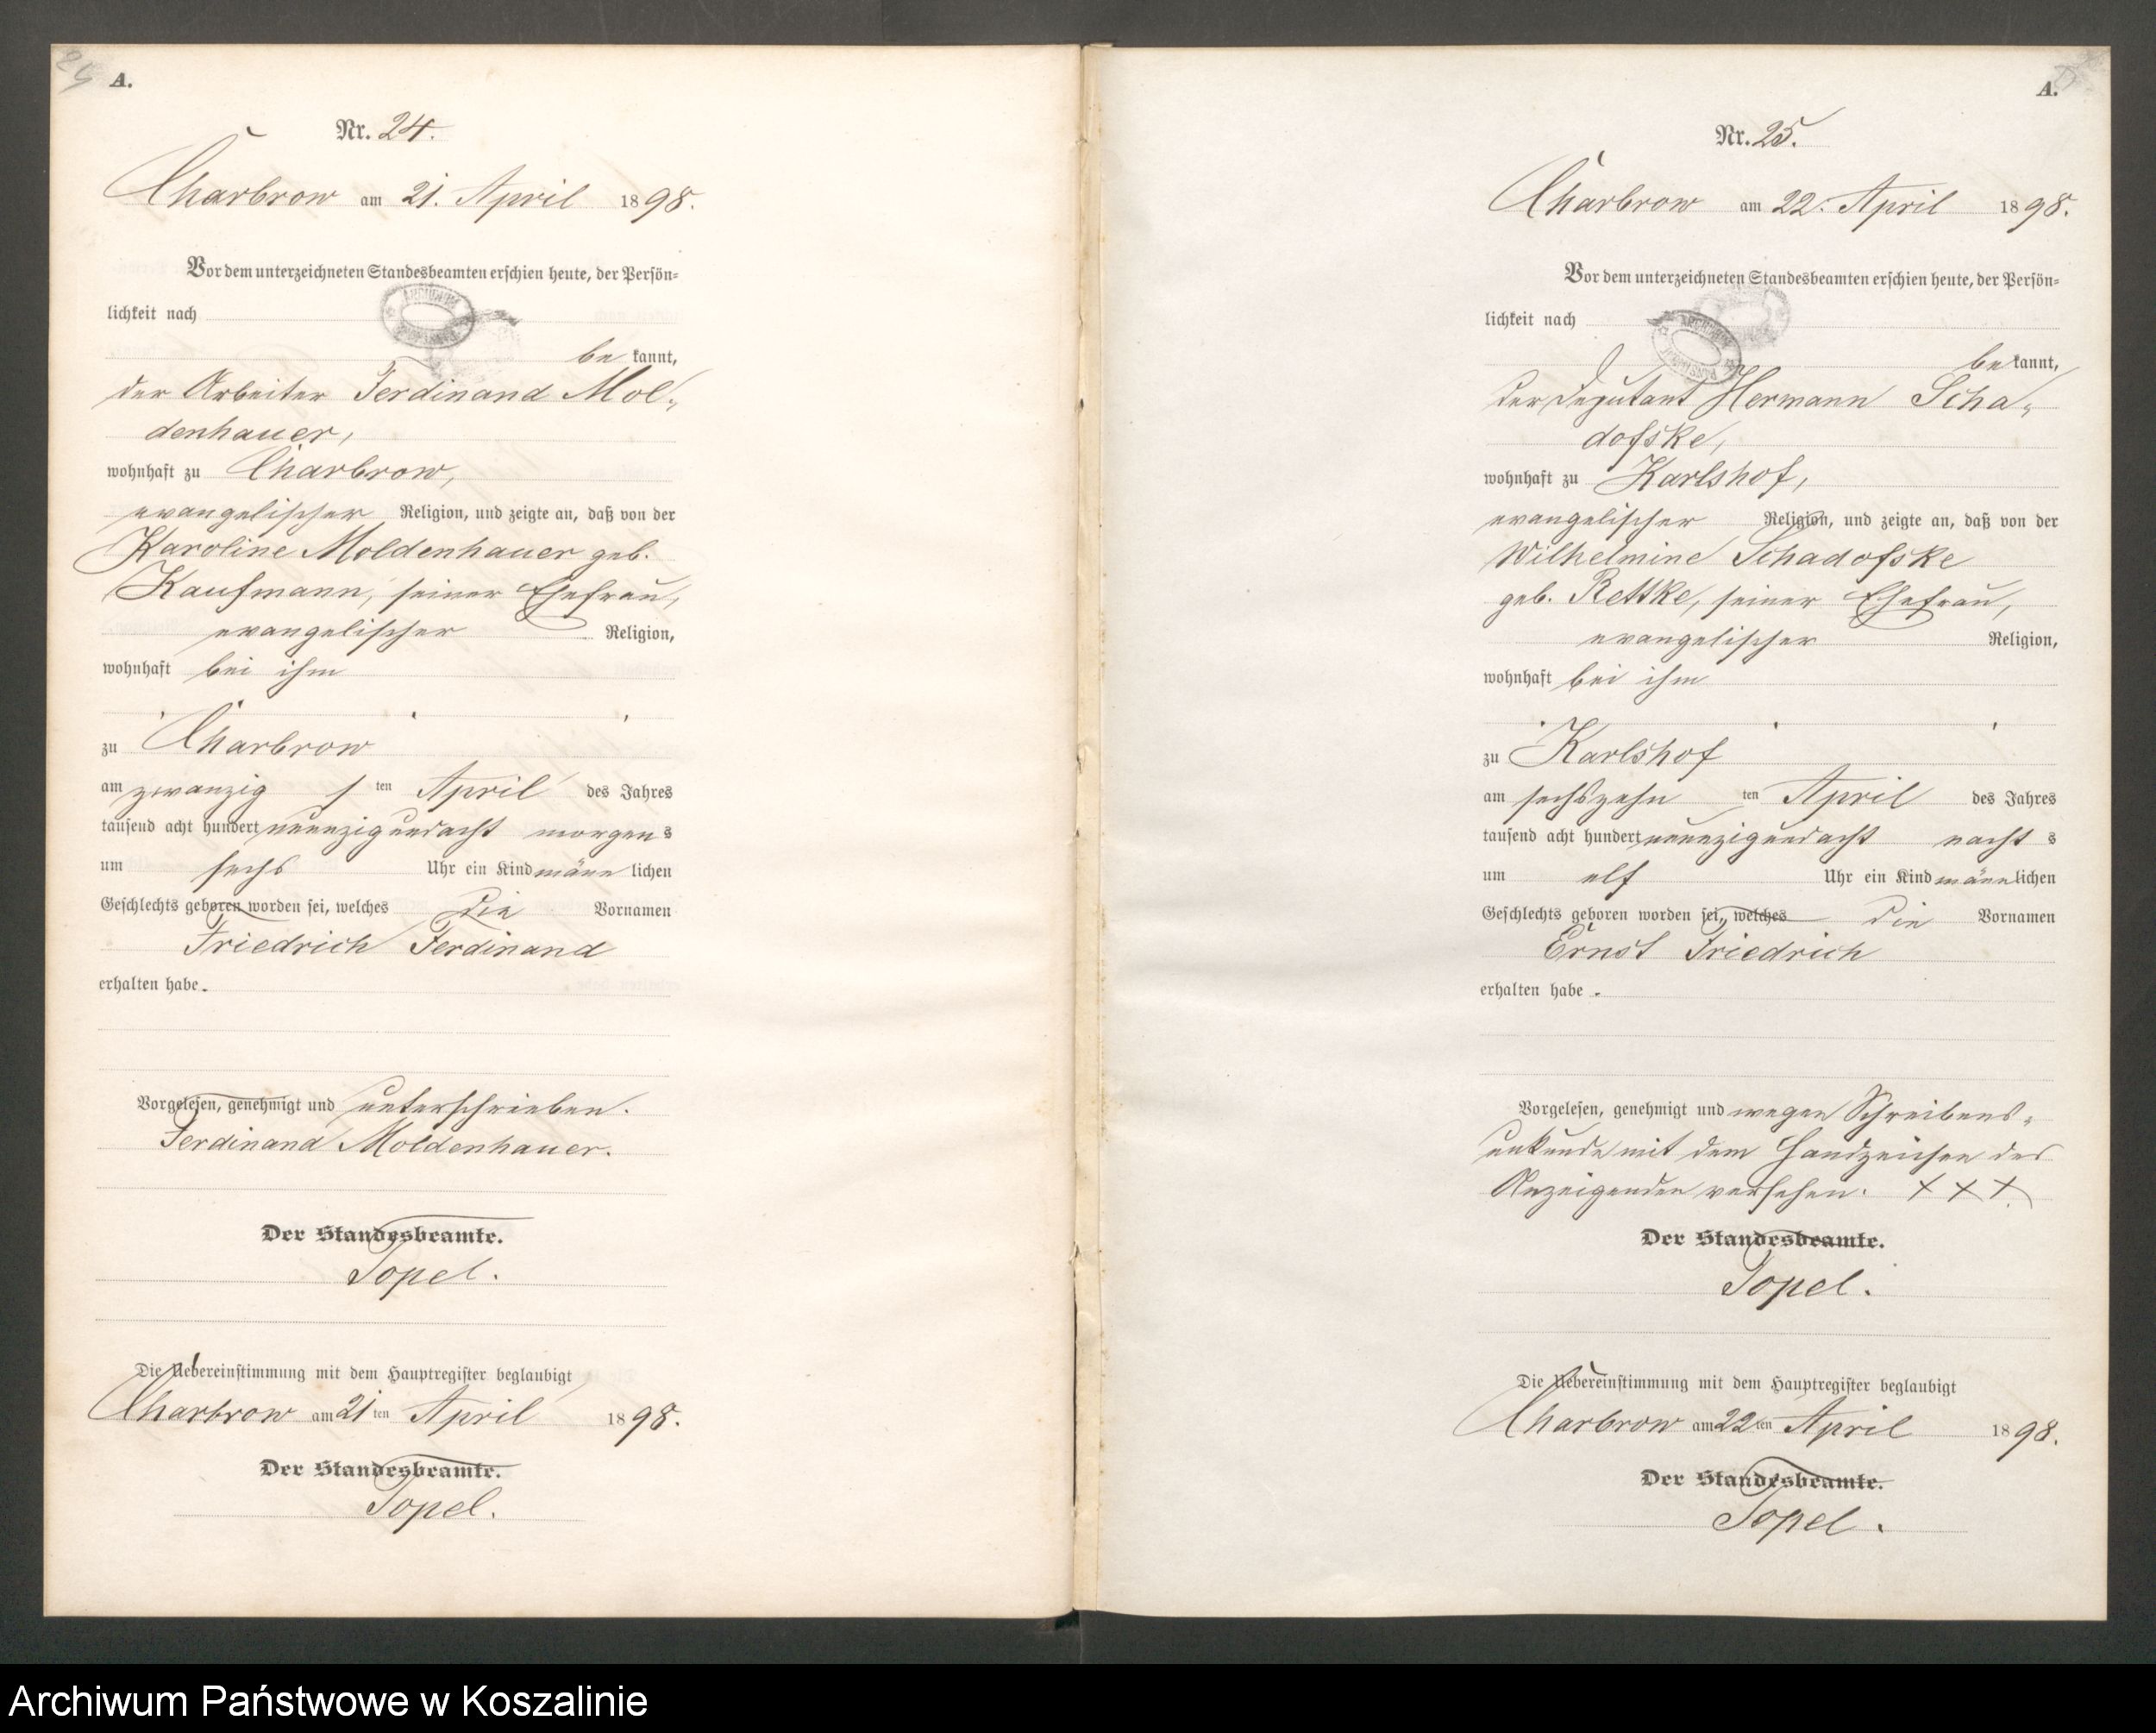 A.
Nr. 24.
Charbrow am 21. April 1898.
Vor dem unterzeichneten Standesbeamten erschien heute, der Persön=
lichkeit nach
be kannt,
der Arbeiter Ferdinand Mol=
denhauer,
wohnhaft zu Charbrow,
evangelischer Religion, und zeigte an, daß von der
Karoline Moldenhauer geb.
Kaufmann, seiner Ehefrau,
evangelischer Religion,
wohnhaft bei ihm
zu Charbrow
am zwanzig sten April des Jahres
tausend acht hundert neunzig und acht morgen s
um sechs Uhr ein Kind männ lichen
Geschlechts geboren worden sei, welches die Vornamen
Friedrich Ferdinand
erhalten habe.
Vorgelesen, genehmigt und unterschrieben.
Ferdinand Moldenhauer.
Der Standesbeamte.
Topel.
Die Uebereinstimmung mit dem Hauptregister beglaubigt
Charbrow am 21 ten April 1898.
Der Standesbeamte.
Topel.
A.
Nr. 25.
Charbrow am 22. April 1898.
Vor dem unterzeichneten Standesbeamten erschien heute, der Persön=
lichkeit nach
be kannt,
der Deputant Hermann Scha=
dofske,
wohnhaft zu Karlshof,
evangelischer Religion, und zeigte an, daß von der
Wilhelmine Schadofske
geb. Rettke, seiner Ehefrau,
evangelischer Religion,
wohnhaft bei ihm
zu Karlshof
am sechszehn ten April des Jahres
tausend acht hundert neunzig und acht nacht s
um elf Uhr ein Kind männlichen
Geschlechts geboren worden sei, welches die Vornamen
Ernst Friedrich
erhalten habe.
Vorgelesen, genehmigt und wegen Schreibens=
unkunde mit dem Handzeichen des
Anzeigenden versehen. XXX
Der Standesbeamte.
Topel.
Die Uebereinstimmung mit dem Hauptregister beglaubigt
Charbrow am 22 ten April 1898.
Der Standesbeamte.
Topel.
Archiwum Państwowe w Koszalinie